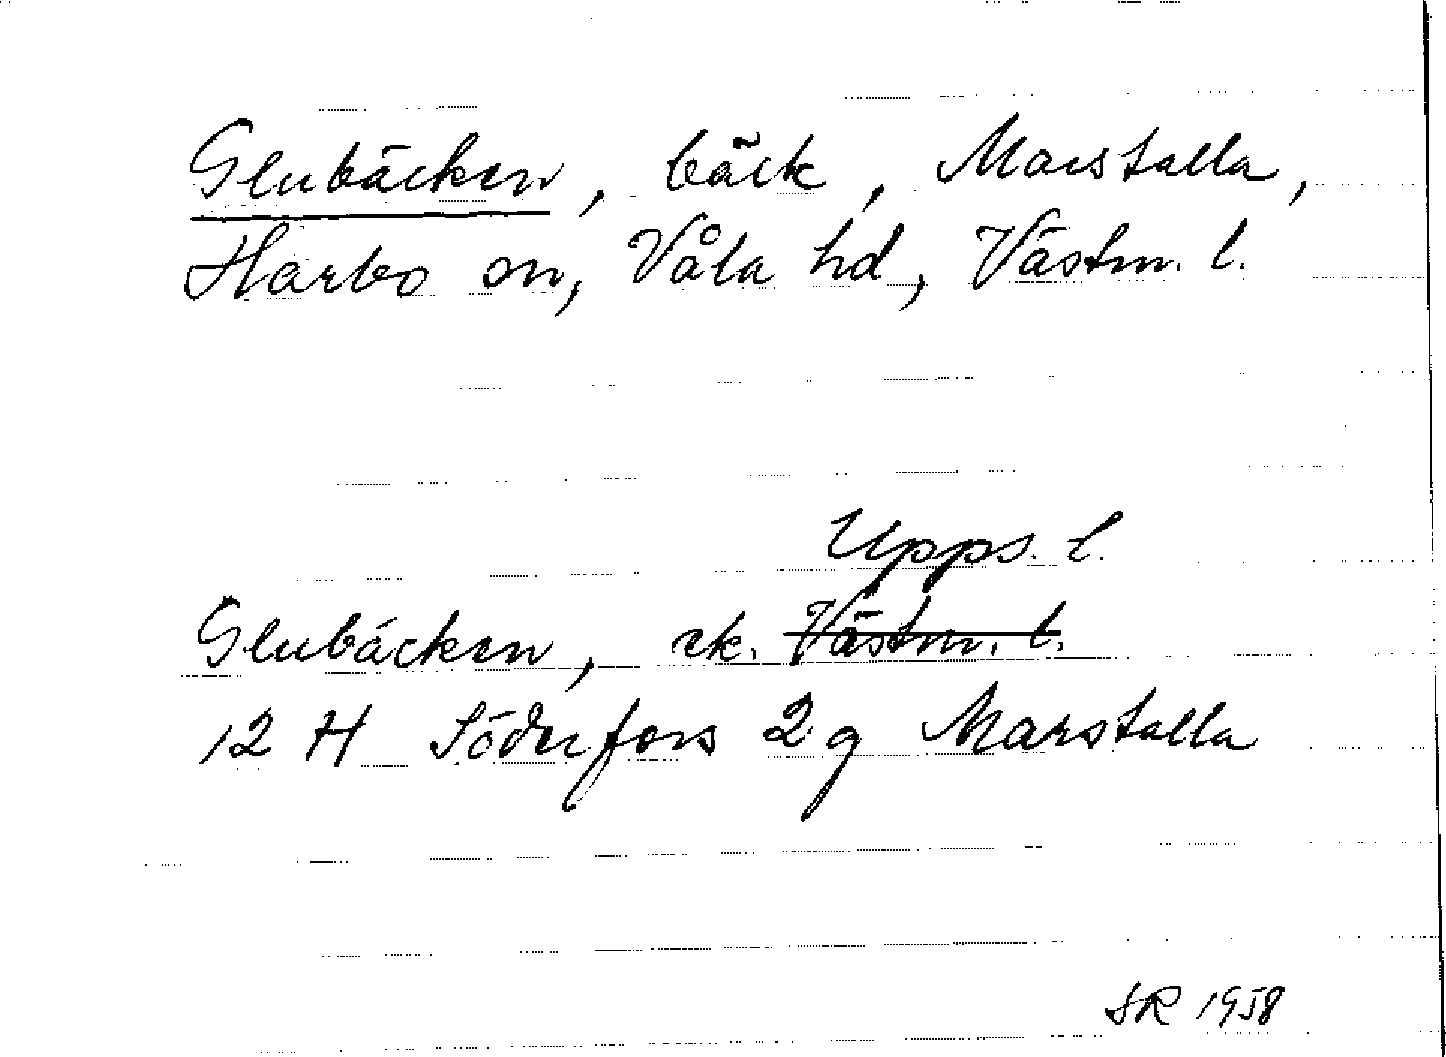 Glubäcken, bäck, Marstalla,
Harbo sn, Våla hd, Västm. l.
Upps. l.
Glubäcken, ek. Västm. l.
12 H Söderfors 2g Marstalla
SR 1958